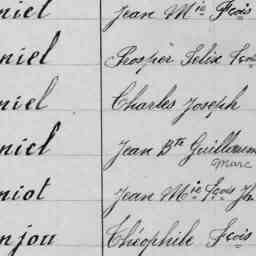 niel Jean Mie Fcois
niel Prosper Felix
niel Charles Joseph
niel Jean Bte Guillaume
Marc
niot Jean Mie Fcois
njou Théophile Fcois